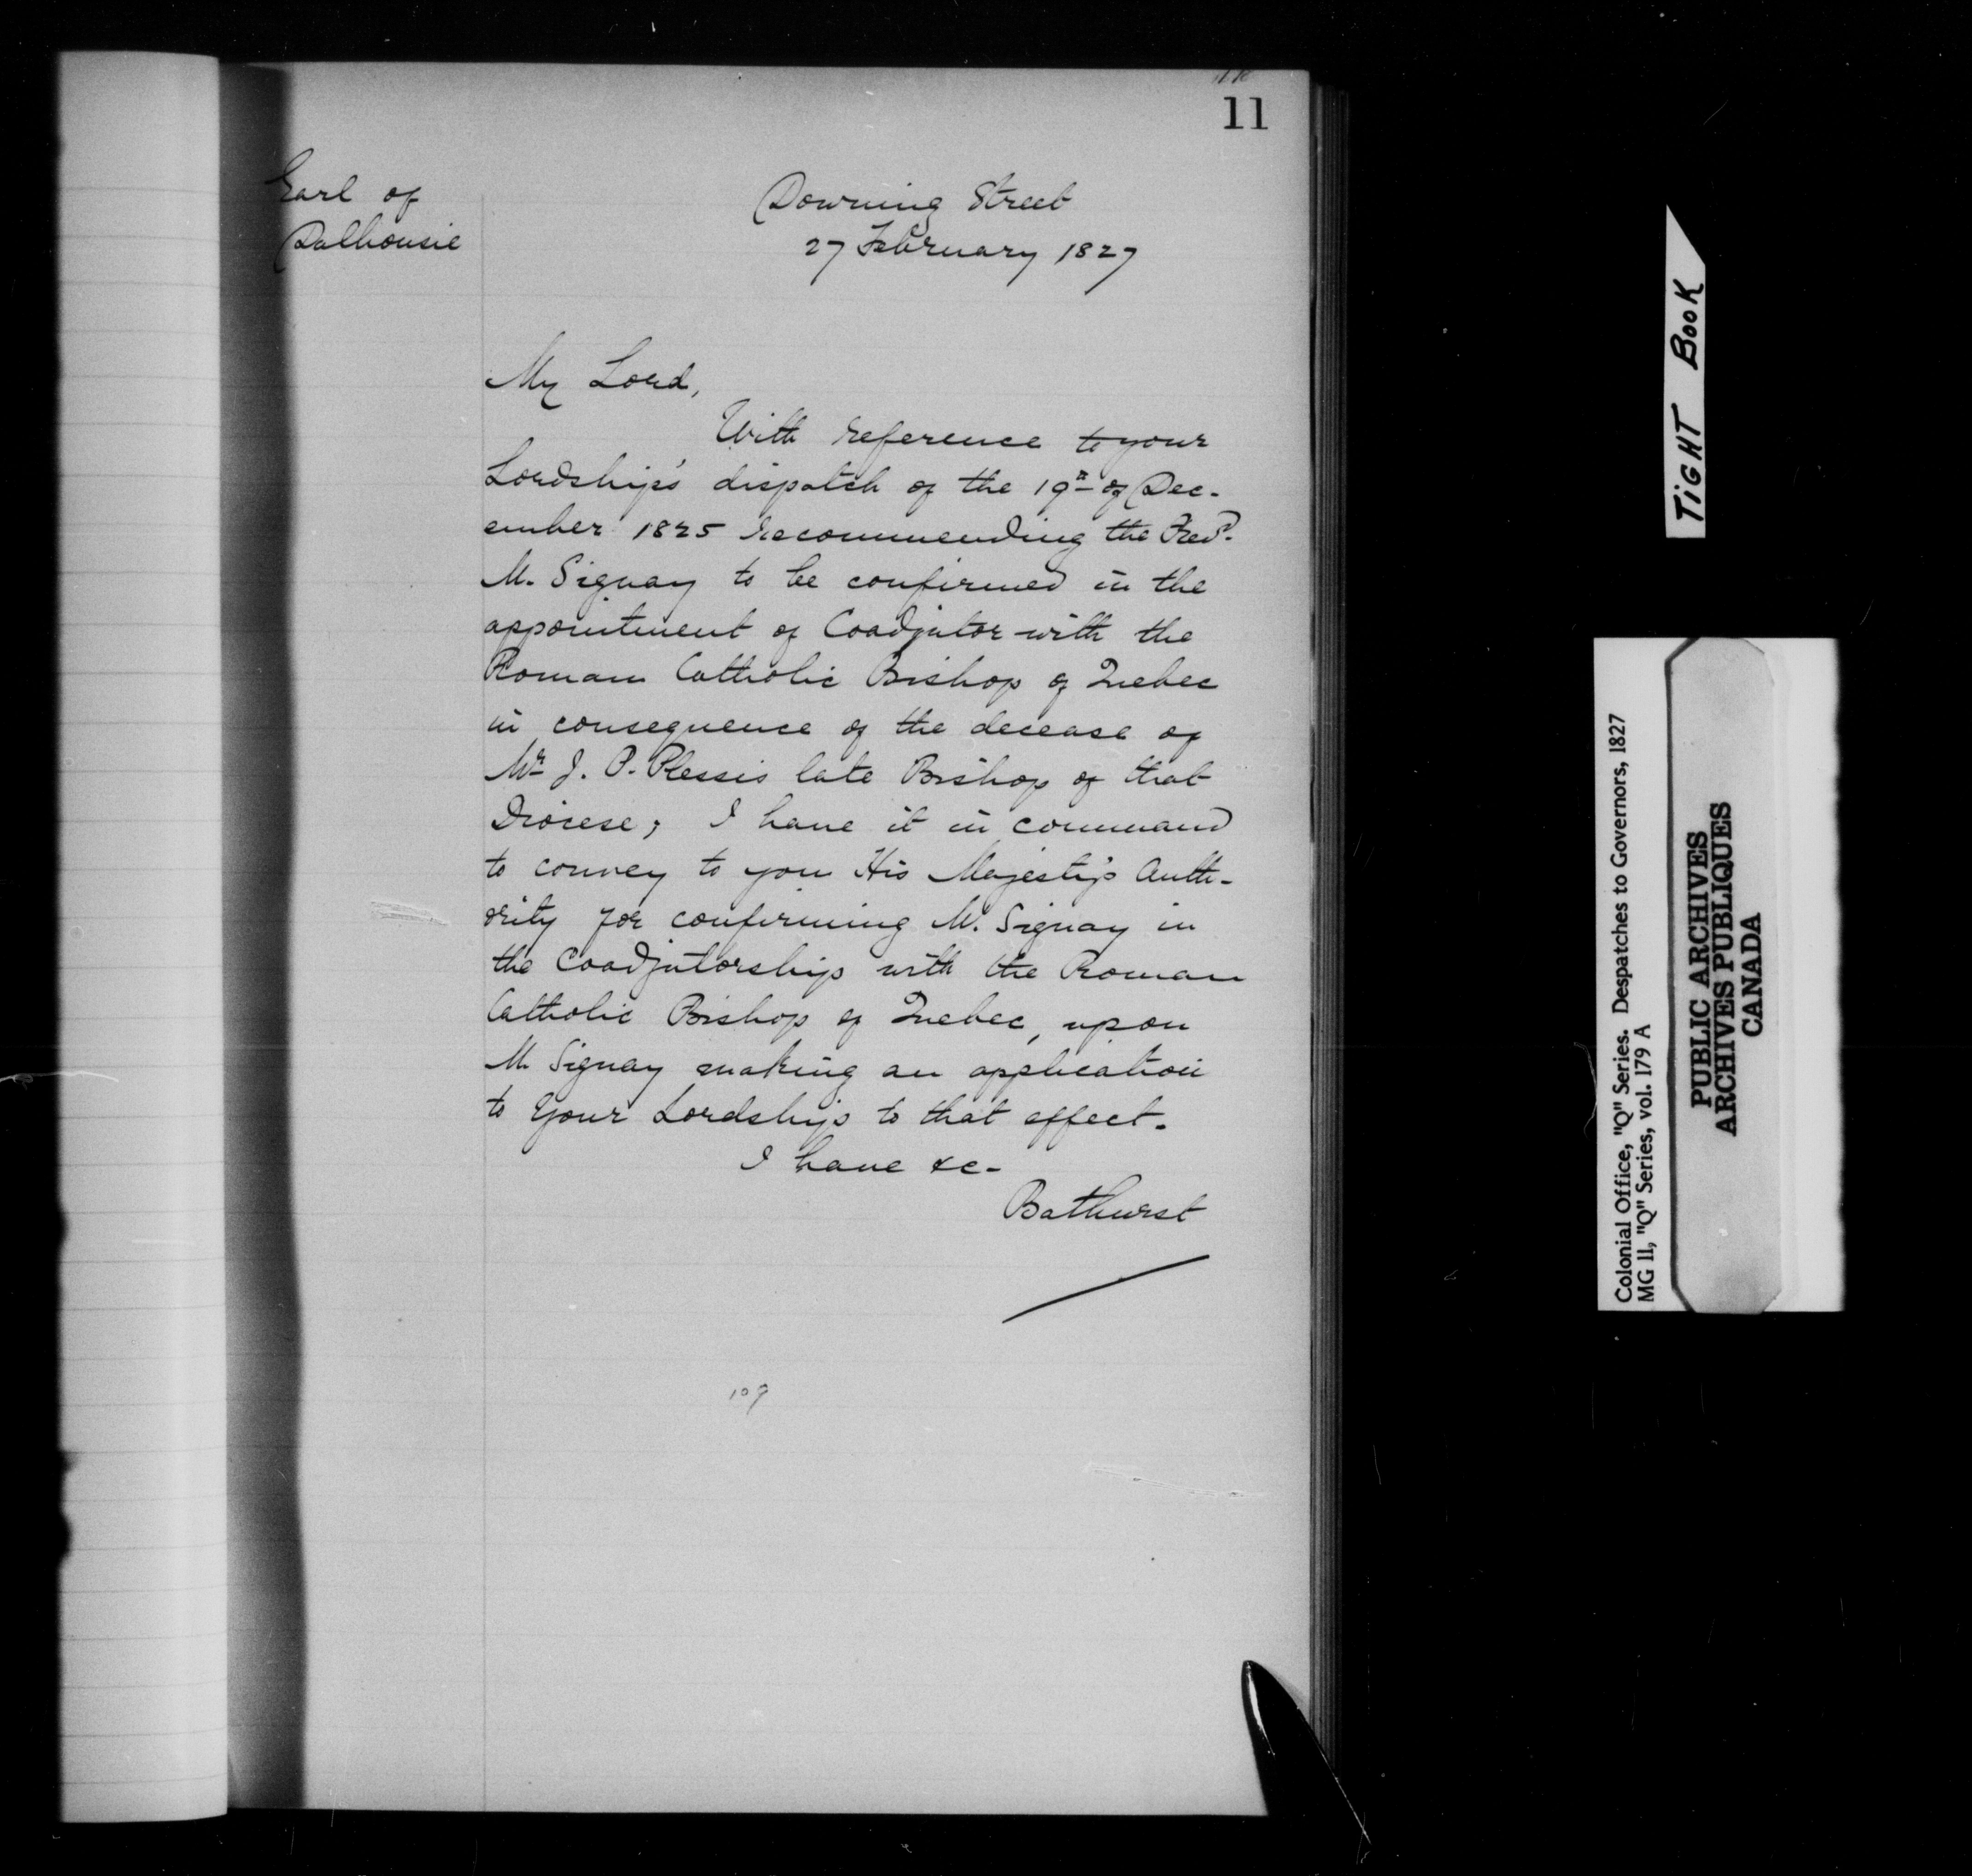 11
Earl of
Dalhousie
Downing Street
27 February 1827
My Lord,
With reference to your
Lordship's dispatch of the 19th of Dec-
ember 1825 recommending the Revd.
M. Signay to be confirmed in the
appointment of Coadjutor with the
Roman Catholic Bishop of Quebec
in consequence of the decease of
Mr J. P. Plessis late Bishop of that
Diocese; I have it in command
to convey to you His Majesty's Auth-
ority for confirming M. Signay in
the Coadjutorship with the Roman
Catholic Bishop of Quebec, upon
M. Signay making an application
to Your Lordship to that effect.
I have &c-
Bathurst
109
TIGHT BOOK
Colonial Office, "Q" Series. Despatches to Governors, 1827
MG 11, "Q" Series, vol. 179 A
PUBLIC ARCHIVES
ARCHIVES PUBLIQUES
CANADA